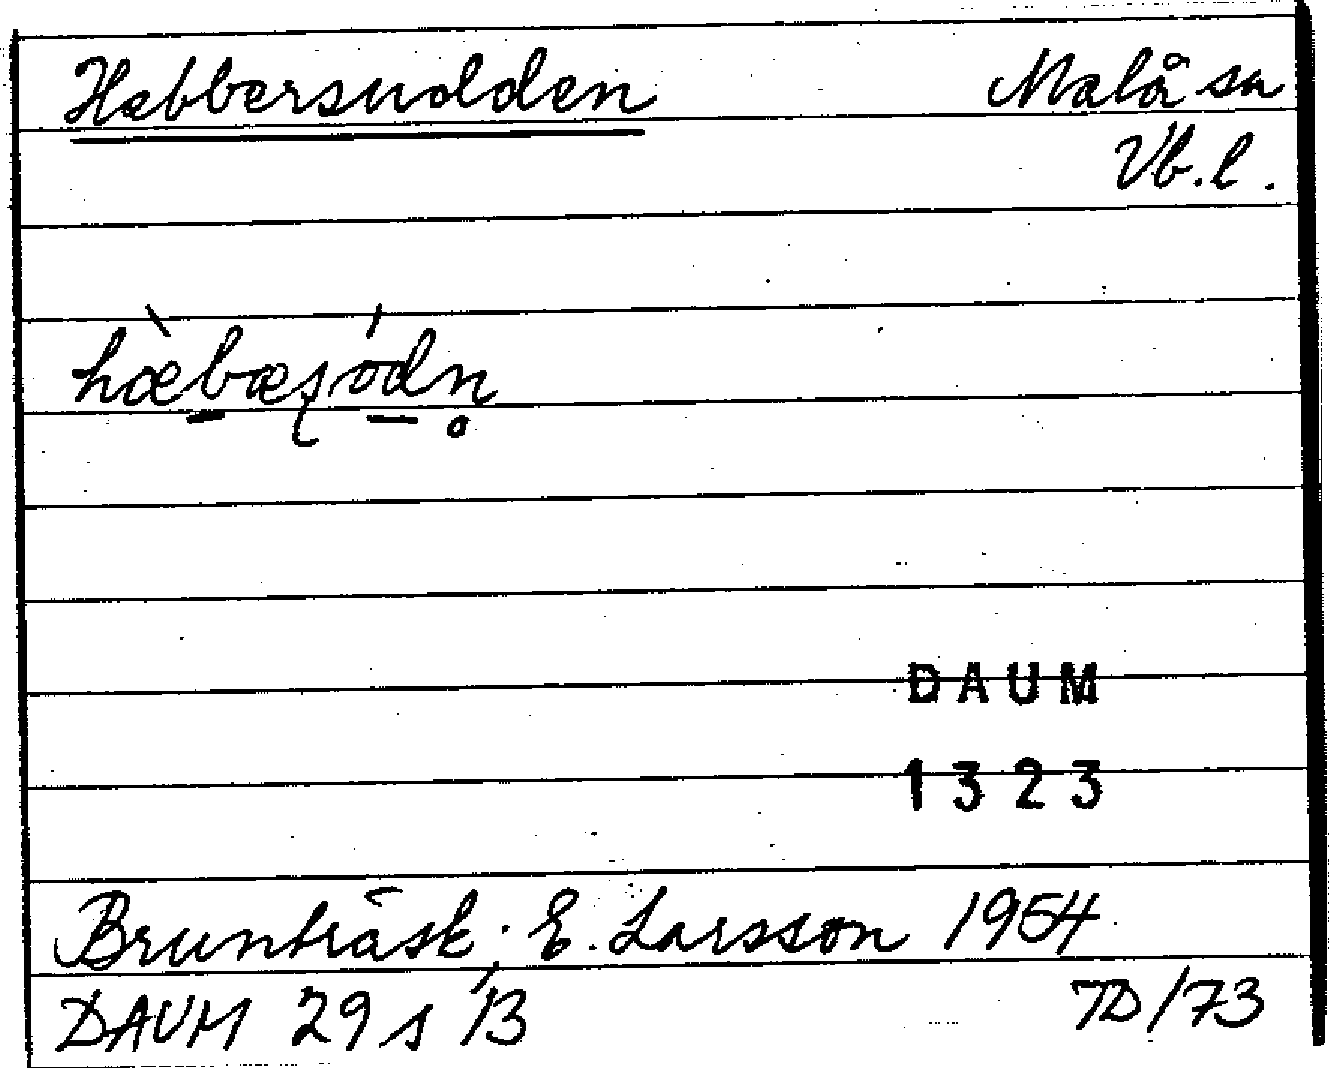 Hebbersudden Malå sn
Vb.l.
hæ̀b̲æʂ́o̲dn̥
DAUM
1323
Brunträsk. E. Larsson 1954
DAUM 29 s 13 TD/73